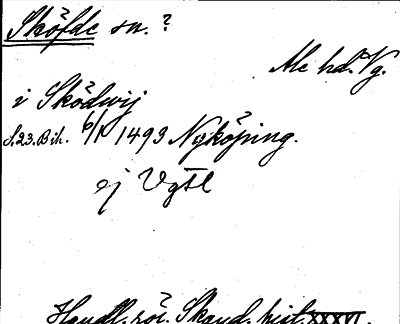 Sköfde sn. ?
Ale hd. Vg.
i Sködwij
S. 23. Bih. 6/1 1493 Nyköping.
ej Vgtl
Handl. rör. Skand. hist. XXXVI.